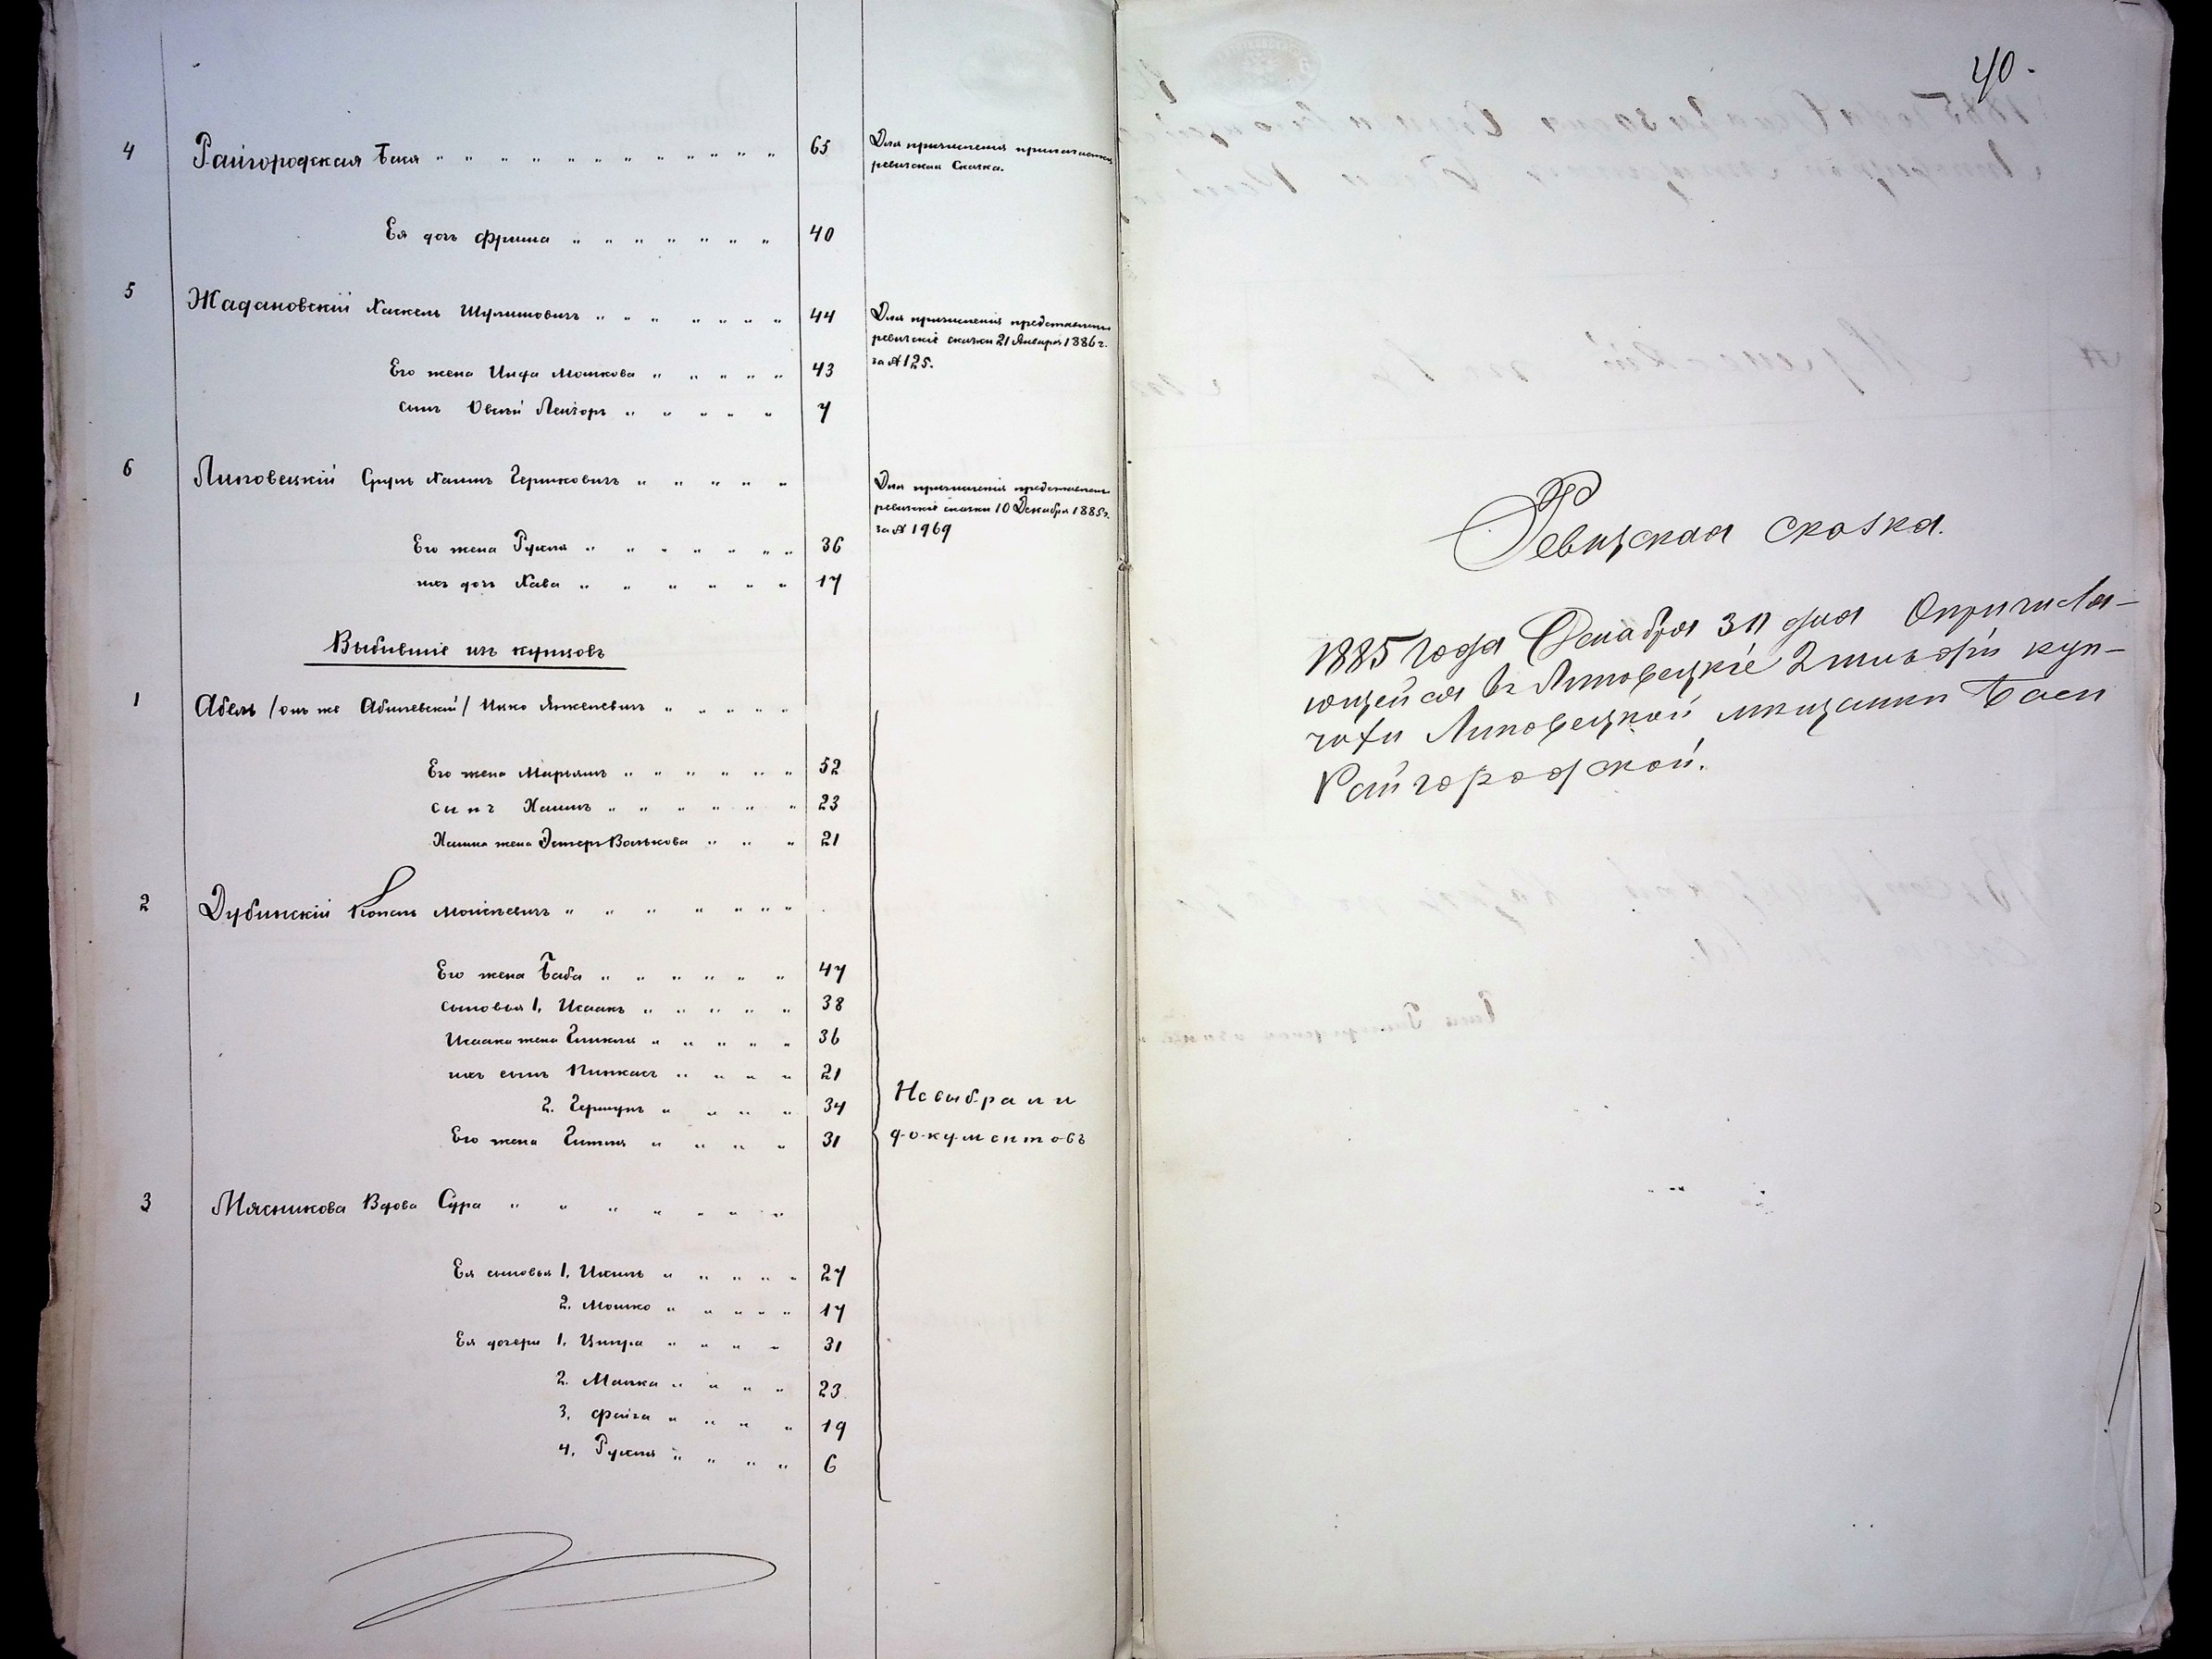 4 Райгородская Бася " " " " " " " " " " " 65 Для причисления прилагается
ревизская Сказка.
Ея дочь Фрима " " " " " " " 40
5 Жадановскій Хаскель Шулимовичъ " " " " " " " 44 Для причисленія представлены
ревизскіе сказки 21 Января 1886 г.
за № 125.
Его жена Инда Мошкова " " " " " 43
сынъ Овшій Лейзоръ " " " " " 7
6 Липовецкій Сруль Хаимъ Гершковичъ " " " " " Для причисленія представлены
ревизскіе сказки 10 Декабря 1885 г.
за № 1969
Его жена Рухля " " " " " " " 36
ихъ дочь Хава " " " " " " 17
Выбывшіе изъ купцовъ
1 Абель /онъ же Абилевскій/ Ицко Янкелевичъ " " " " "
Его жена Марьямъ " " " " " " 52
сынъ Хаимъ " " " " " " " 23
Хаима жена Эстеръ Волькова " " " 21
2 Дубинскій Копель Моисѣевичъ " " " " " " " "
Его жена Баба " " " " " " 47
сыновья 1, Исаакъ " " " " " 38
Исаака жена " " " " " 36
ихъ сынъ Пинхасъ " " " " 21
2. Гершунъ " " " " 34
Его жена Гитля " " " " 31
Невыбрали
документовъ
3 Мясникова Вдова Сура " " " " " " "
Ея сыновья 1, " " " " " 27
2. Мошко " " " " " 17
Ея дочери 1, Ципра " " " " 31
2. Малка " " " " 23
3, Файга " " " " 19
4, Рухля " " " " 6
40.
Ревизская сказка.
1885 года Декабря 31 дня О причисля-
ющейся въ Липовецкіе 2 гильдіи куп-
чихи Липовецкой мѣщанки Баси
Райгородской.